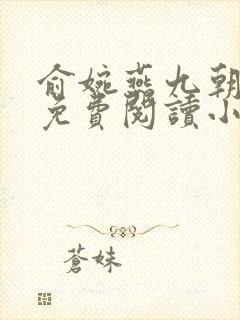 俞婉燕九朝
免費閱讀小
蒼妹